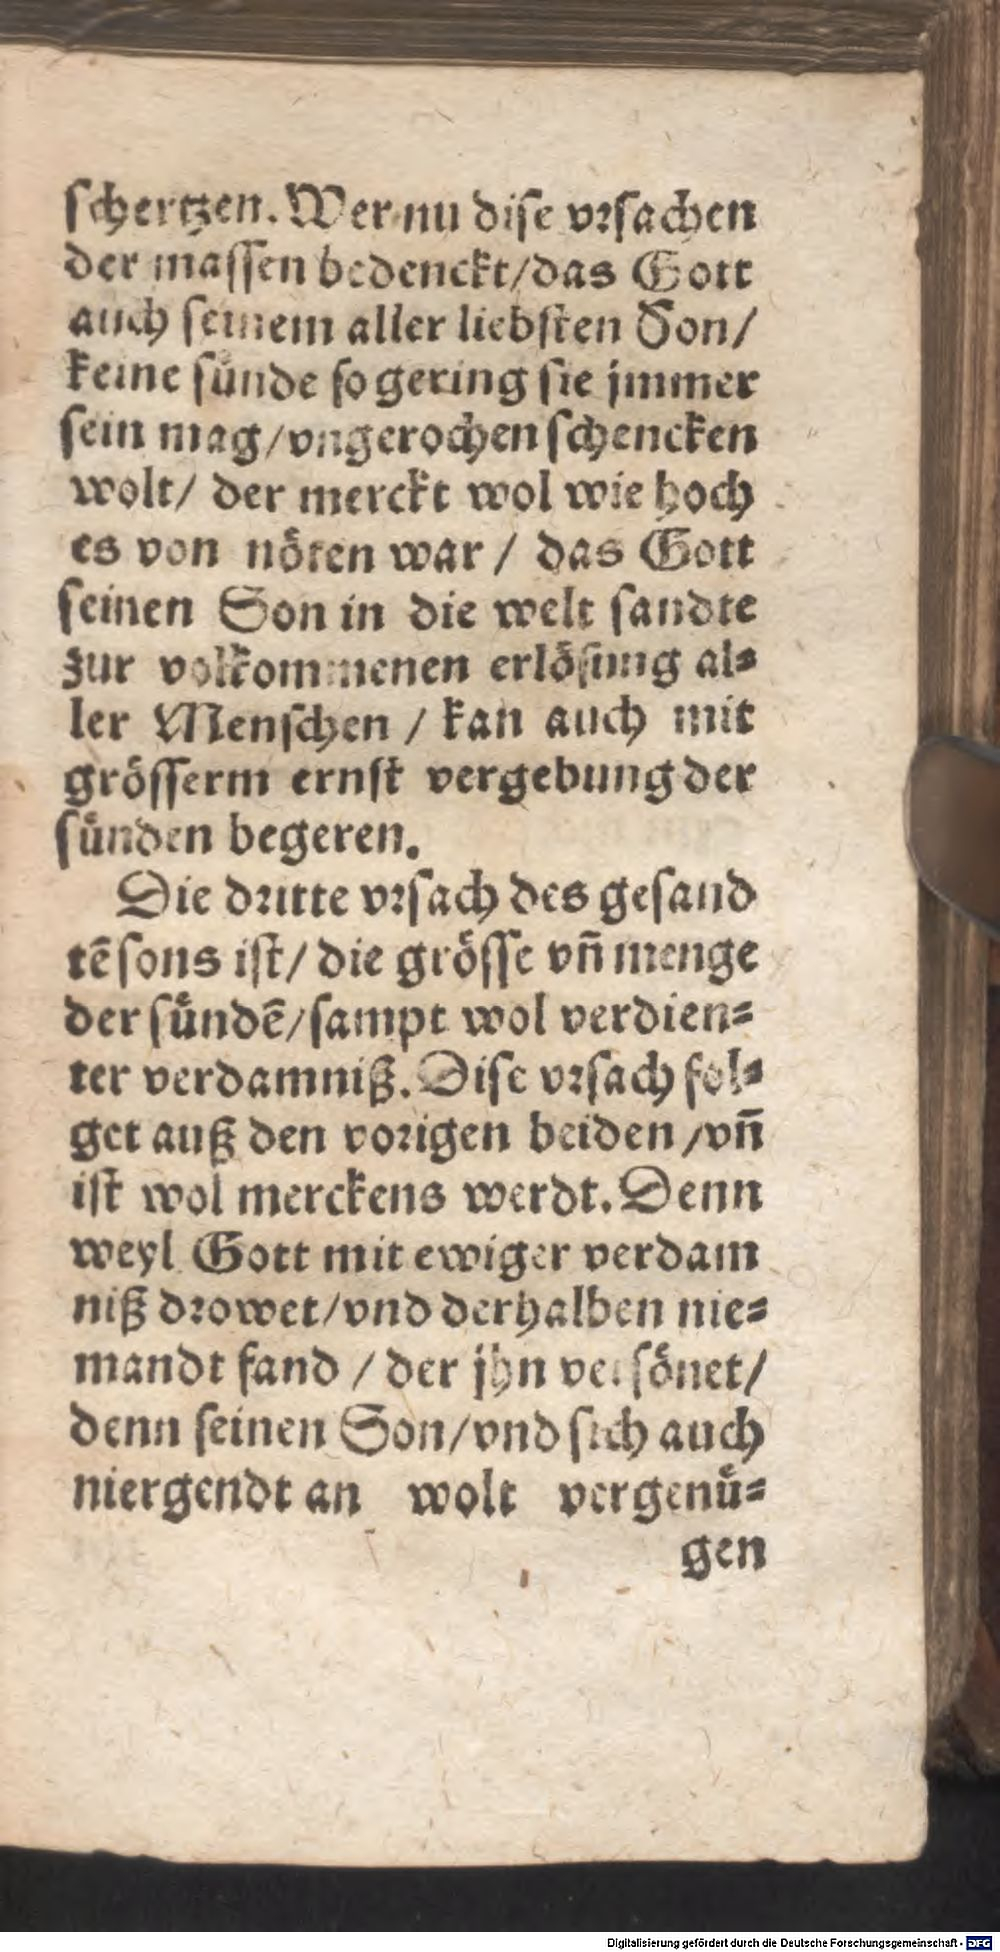 schertzen. Wer nu dise vrsachen
der massen bedenckt/das Gott
auch seinem aller liebsten Son/
keine sünde so gering sie jmmer
sein mag/vngerochen schencken
wolt/ der merckt wol wie hoch
es von nöten war / das Gott
seinen Son in die welt sandte
zur volkommenen erlösung al=
ler Menschen / kan auch mit
grösserm ernst vergebung der
sünden begeren.
Die dritte vrsach des gesand
tē sons ist/ die grösse vñ menge
der sündē/sampt wol verdien=
ter verdamniß. Dise vrsach fol=
get auß den vorigen beiden /vñ
ist wol merckens werdt. Denn
weyl Gott mit ewiger verdam
niß drowet/vnd derhalben nie=
mandt fand / der jhn versönet/
denn seinen Son/vnd sich auch
niergendt an wolt vergenü=
gen
Digitalisierung gefördert durch die Deutsche Forschungsgemeinschaft - DFG